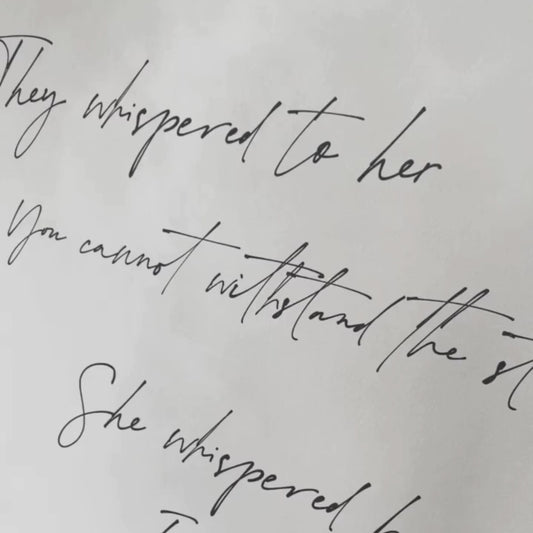 They whispered to her
You cannot withstand the st
She whispered b
I